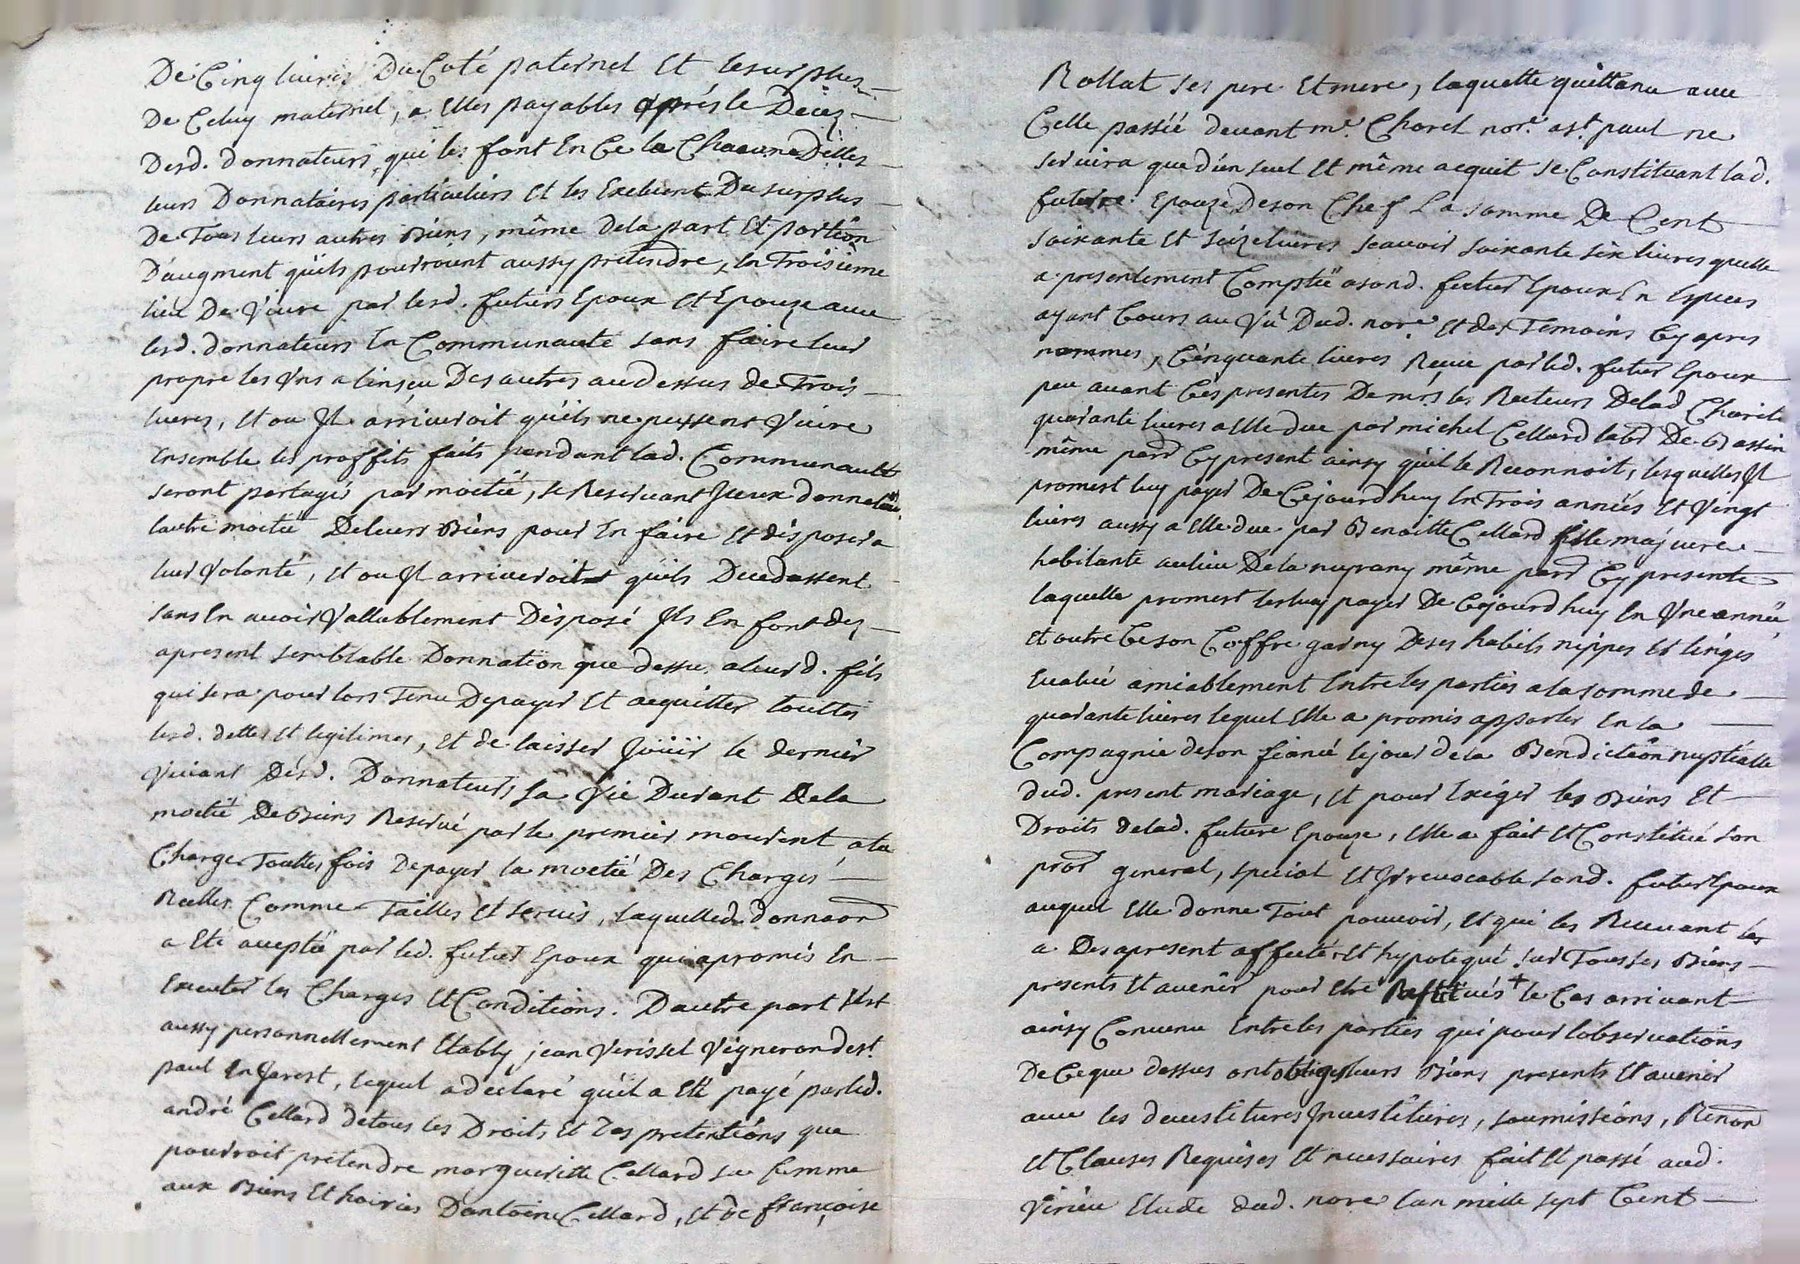 De Cinq livres Du Coté paternel Et le surplus
De Celuy maternel, a Elles payables après le Décez
Desd. donnateurs, qui les font En Ce la Chacune Delles
leurs Donnataires particuliers Et les Excluent Du surplus
De Tous leurs autres Biens, même Dela part Et portion
D'augment quils pourroient aussy prétendre, En Troisieme
lieu De Vivre par lesd. futurs Epoux Et Epouze avec
lesd. donnateurs En Communauté sans faire leur
propre les Uns a linsçu Des autres audessus de Trois
livres, Et ou Il arriveroit quils ne pussent Vivre
Ensemble les proffits faits pendant lad. Communauté
seront partagés par moetié, se Reservant Iceux donnateurs
lautre moetié De leurs Biens pour En faire Et disposer a
leur Volonté, Et ou Il arriveroit quils Decedassent
sans En avoir Vallablement Disposé Ils En font dez
apresent semblable Donnation que dessus aleurd. fils
qui sera pour lors Tenu De payer Et acquitter touttes
lesd. dettes Et legitimes, Et de laisser Joüir le dernier
Vivant Desd. Donnateurs sa Vie Durant Dela
moetié De Biens Reservé par le premier mourant, ala
Charge Touttes fois De payer la moetié Des Charges
Reelles Comme Tailles Et servis, laquelle donnaon
a Eté acceptée par led. futur Epoux qui a promis En
Executer les Charges Et Conditions. Dautre part S'est
aussy personnellement Etably jean Verissel Vigneron de st.
paul En Jarest, lequel a déclaré qu'il a Eté payé par led.
andré Cellard de tous les Droits Et Des prétentions que
pourroit prétendre margueritte Cellard sa femme
aux Biens Et hoiries Dantoine Cellard, Et de françoise
Rollat ses pere Et mere, laquelle quittance avec
Celle passée devant me. Chorel nore. a st. paul ne
servira que d'un seul Et même acquit se Constituant lad.
future Epouze De son Chef La somme De Cent
soixante Et seize livres scavoir soixante six livres quelle
a présentement Comptée a sond. futur Epoux En Especes
ayant Cours au Vû Dud. nore. Et des Temoins Cy apres
nommes, Cinquante livres Reçue par led. futur Epoux
peu avant Ces presentes De mrs. les Recteurs Delad Charité
quarante livres a Elle due par michel Cellard labr De Bassin
même pard Cy present ainsy quil le Reconnoit, lesquelles Il
promest luy payer De Cejourd huy En Trois années Et Vingt
livres aussy a Elle due par Benoitte Cellard fille majeure
habitante au lieu De la même pard Cy presente
laquelle promest les luy payer De Cejourd huy En Une année
Et outre Ce son Coffre garny De ses habits nippes Et linges
Evalué amiablement Entre les parties a la somme de
quarante livres lequel Elle a promis apporter En la
Compagnie de son fiancé le jour de la Bendiction nuptialle
dud. present mariage, Et pour Exiger les Biens Et
Droits delad. future Epouze, Elle a fait Et Constitué son
pror general, special Et Irrevocable sond. futur Epoux
auquel Elle donne Tout pouvoir, Et qui les Recevant les
a Des apresent affectés Et hypotequé sur Tous ses Biens
presents Et avenir pour Etre Restitués + le Cas arrivant
ainsy Convenu Entre les parties qui pour lobservations
De Ceque dessus ont obligés leurs Biens presents Et avenir
avec les devestitures Investitures, soumissions, Renon
Et Clauses Requises Et necessaires fait Et passé aud.
Virieu Etude dud. nore lan mille sept Cent